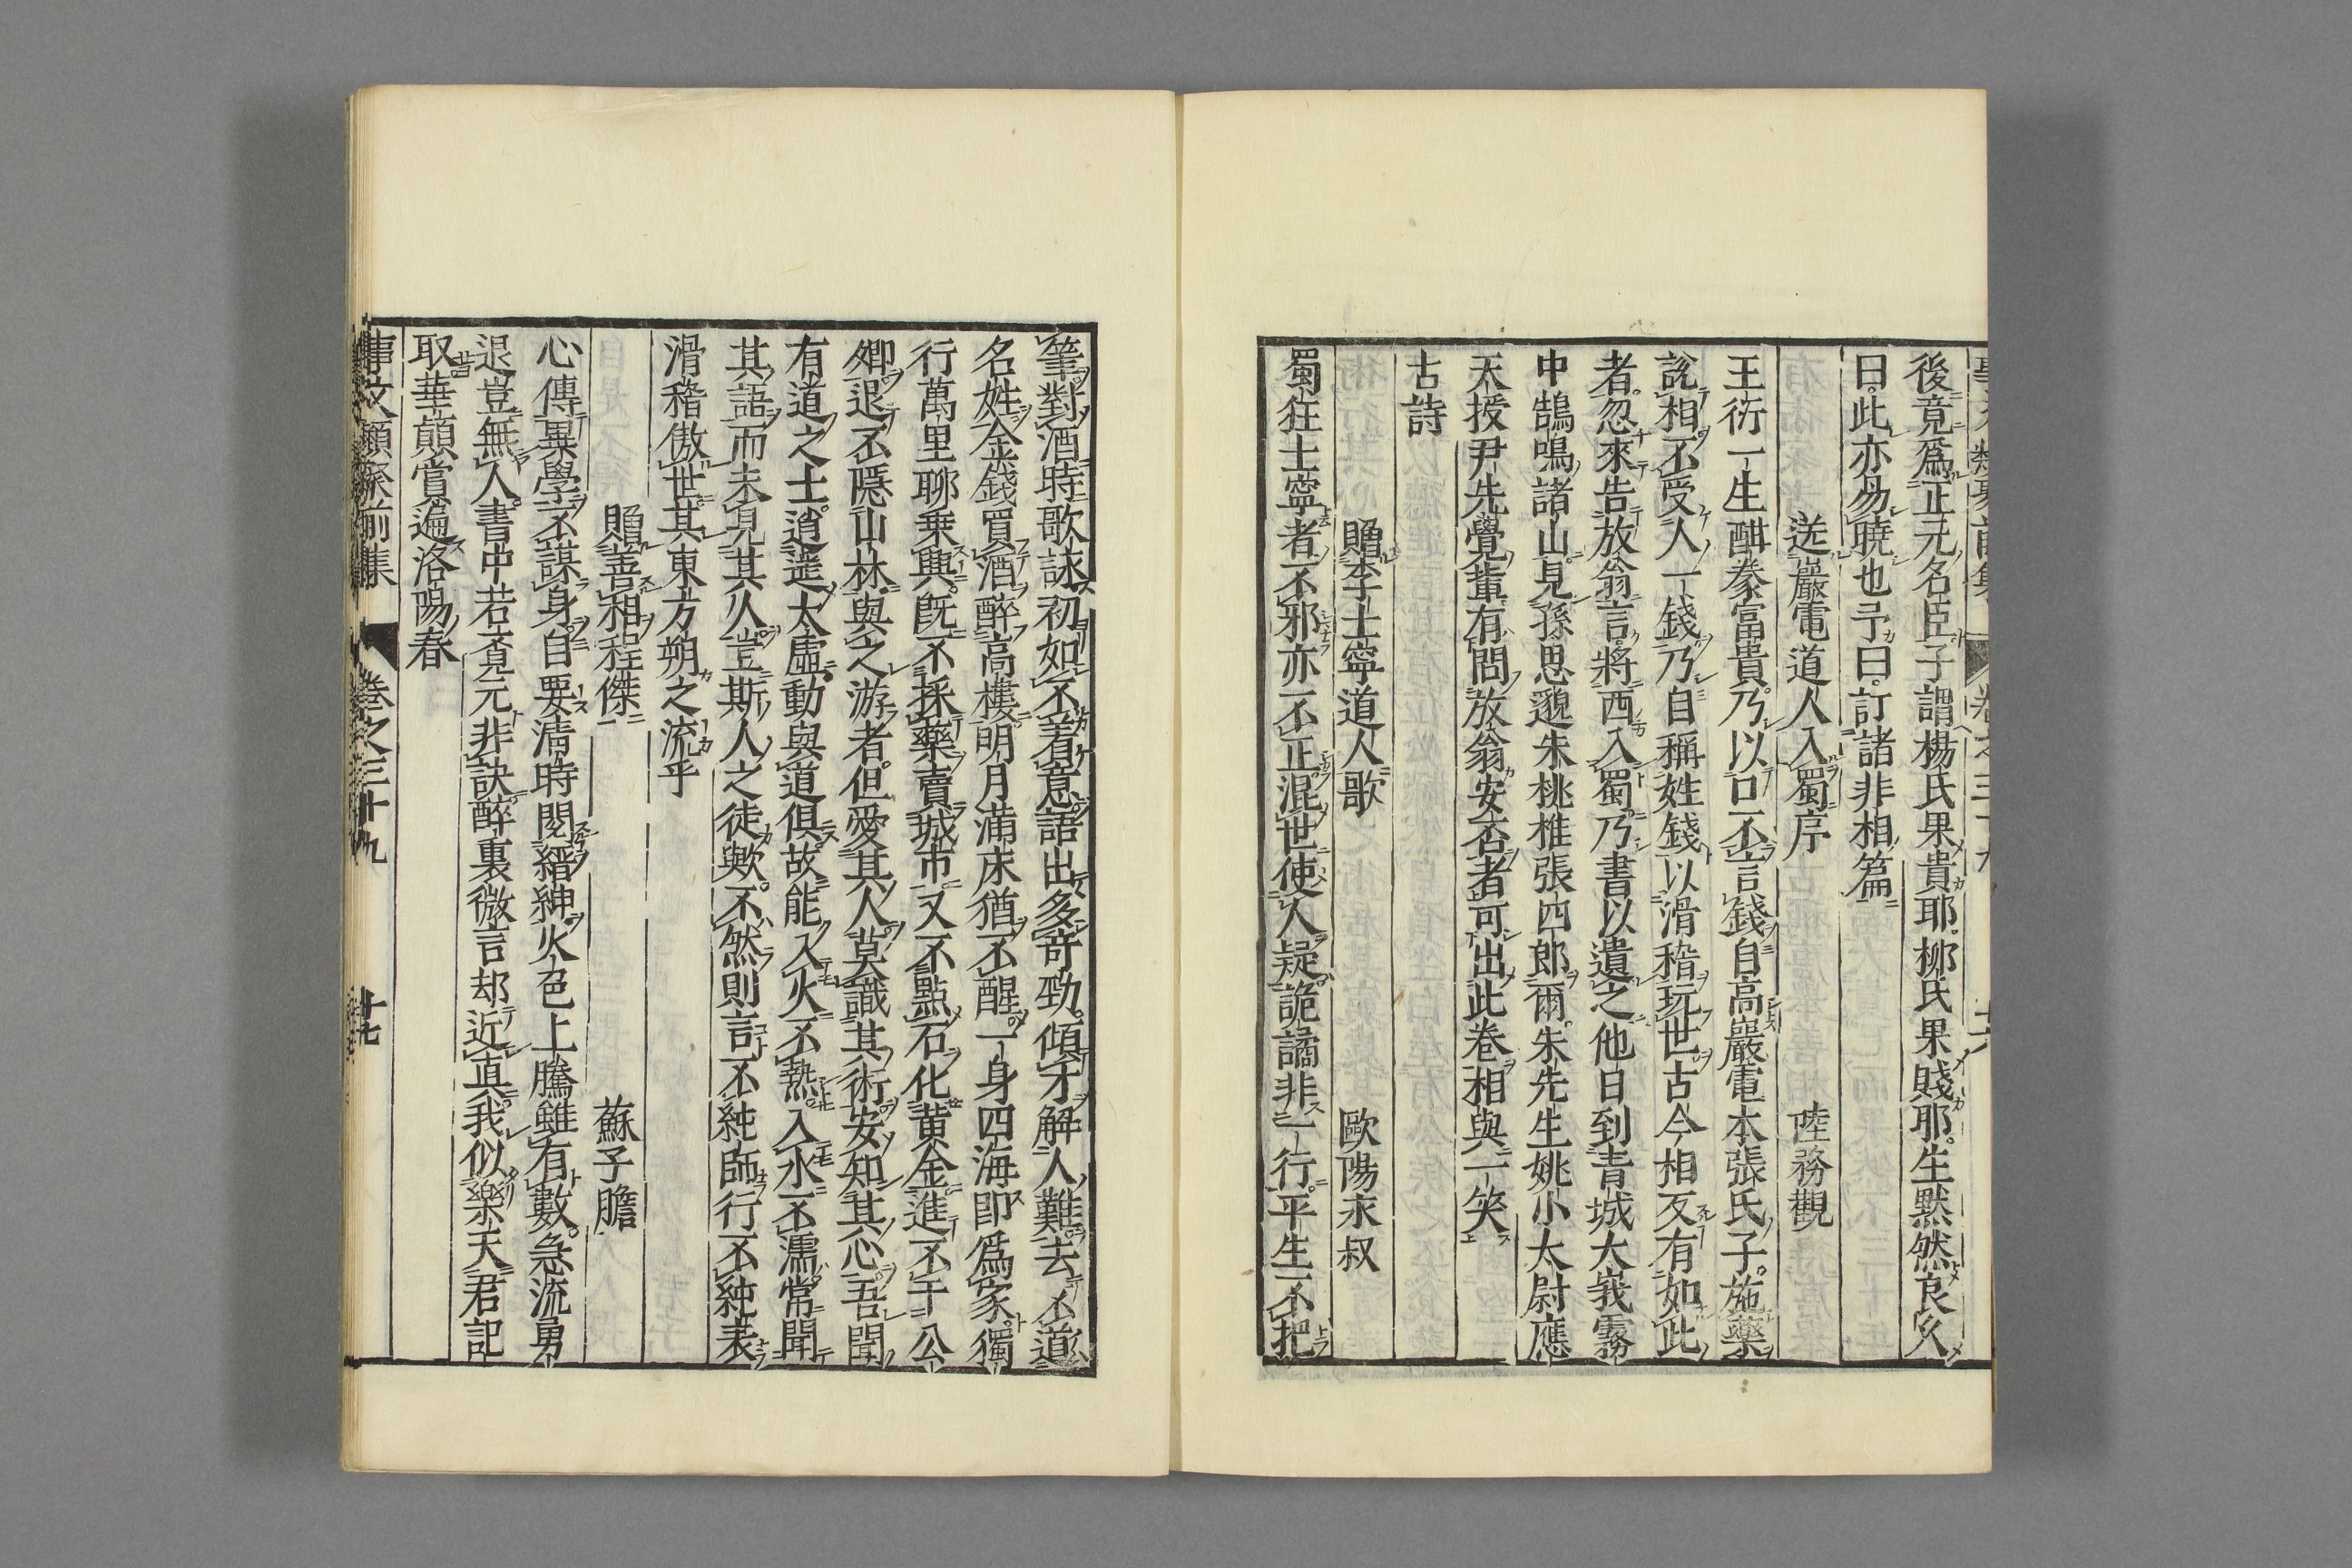 後竟爲正元名臣子謂楊氏果貴耶柳氏果賤耶生默然良久
曰此亦易曉也予曰訂諸非相篇
送巖電道人入蜀序 陸務觀
王衍一生酣豢富貴乃以口不言錢自高巖電本張氏子施藥
說相不受人一錢乃自稱姓錢以滑稽玩世古今相反有如此
者忽來告放翁言將西入蜀乃書以遺之他日到青城大峩霧
中鵠鳴諸山見孫思邈朱桃椎張四郎爾朱先生姚小太尉應
天授尹先覺輩有問放翁安否者可出此卷相與一笑
古詩
贈李士寧道人歌 歐陽永叔
蜀狂士寧者不邪亦不正混世使人疑詭譎非一行平生不把
筆對酒時歌詠初如不着意語出多奇勁傾才解人難去不道
名姓金錢買酒醉高樓明月滿床猶不醒一身四海即爲家獨
行萬里聊乗興旣不採藥賣城市又不點石化黄金進不干公
卿退不隱山林與之游者但愛其人莫識其術安知其心吾聞
有道之士逍遥太虛動與道俱故能入火不熱入水不濡常聞
其語而未見其人豈斯人之徒歟不然則言不純師行不純表
滑稽傲世其東方朔之流乎
贈善相程傑 蘇子膽
心傳異學不謀身自要淸時閱縉紳火色上騰雖有數急流勇
退豈無人書中苦覓元非訣醉裏微言却近真我似樂天君記
取華顛賞遍洛陽春
事文類聚前集 卷之三十九 十七